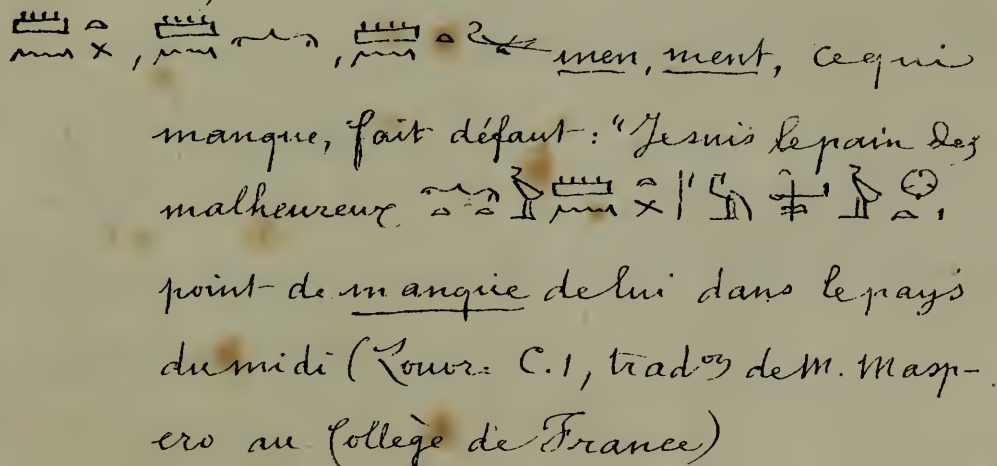 men, ment, ce qui
manque, fait défaut : "Je suis le pain des
malheureux
point de manque de lui dans le pays
du midi (Louvr. C.1, trad.on de M. Masp-
ero au Collège de France)